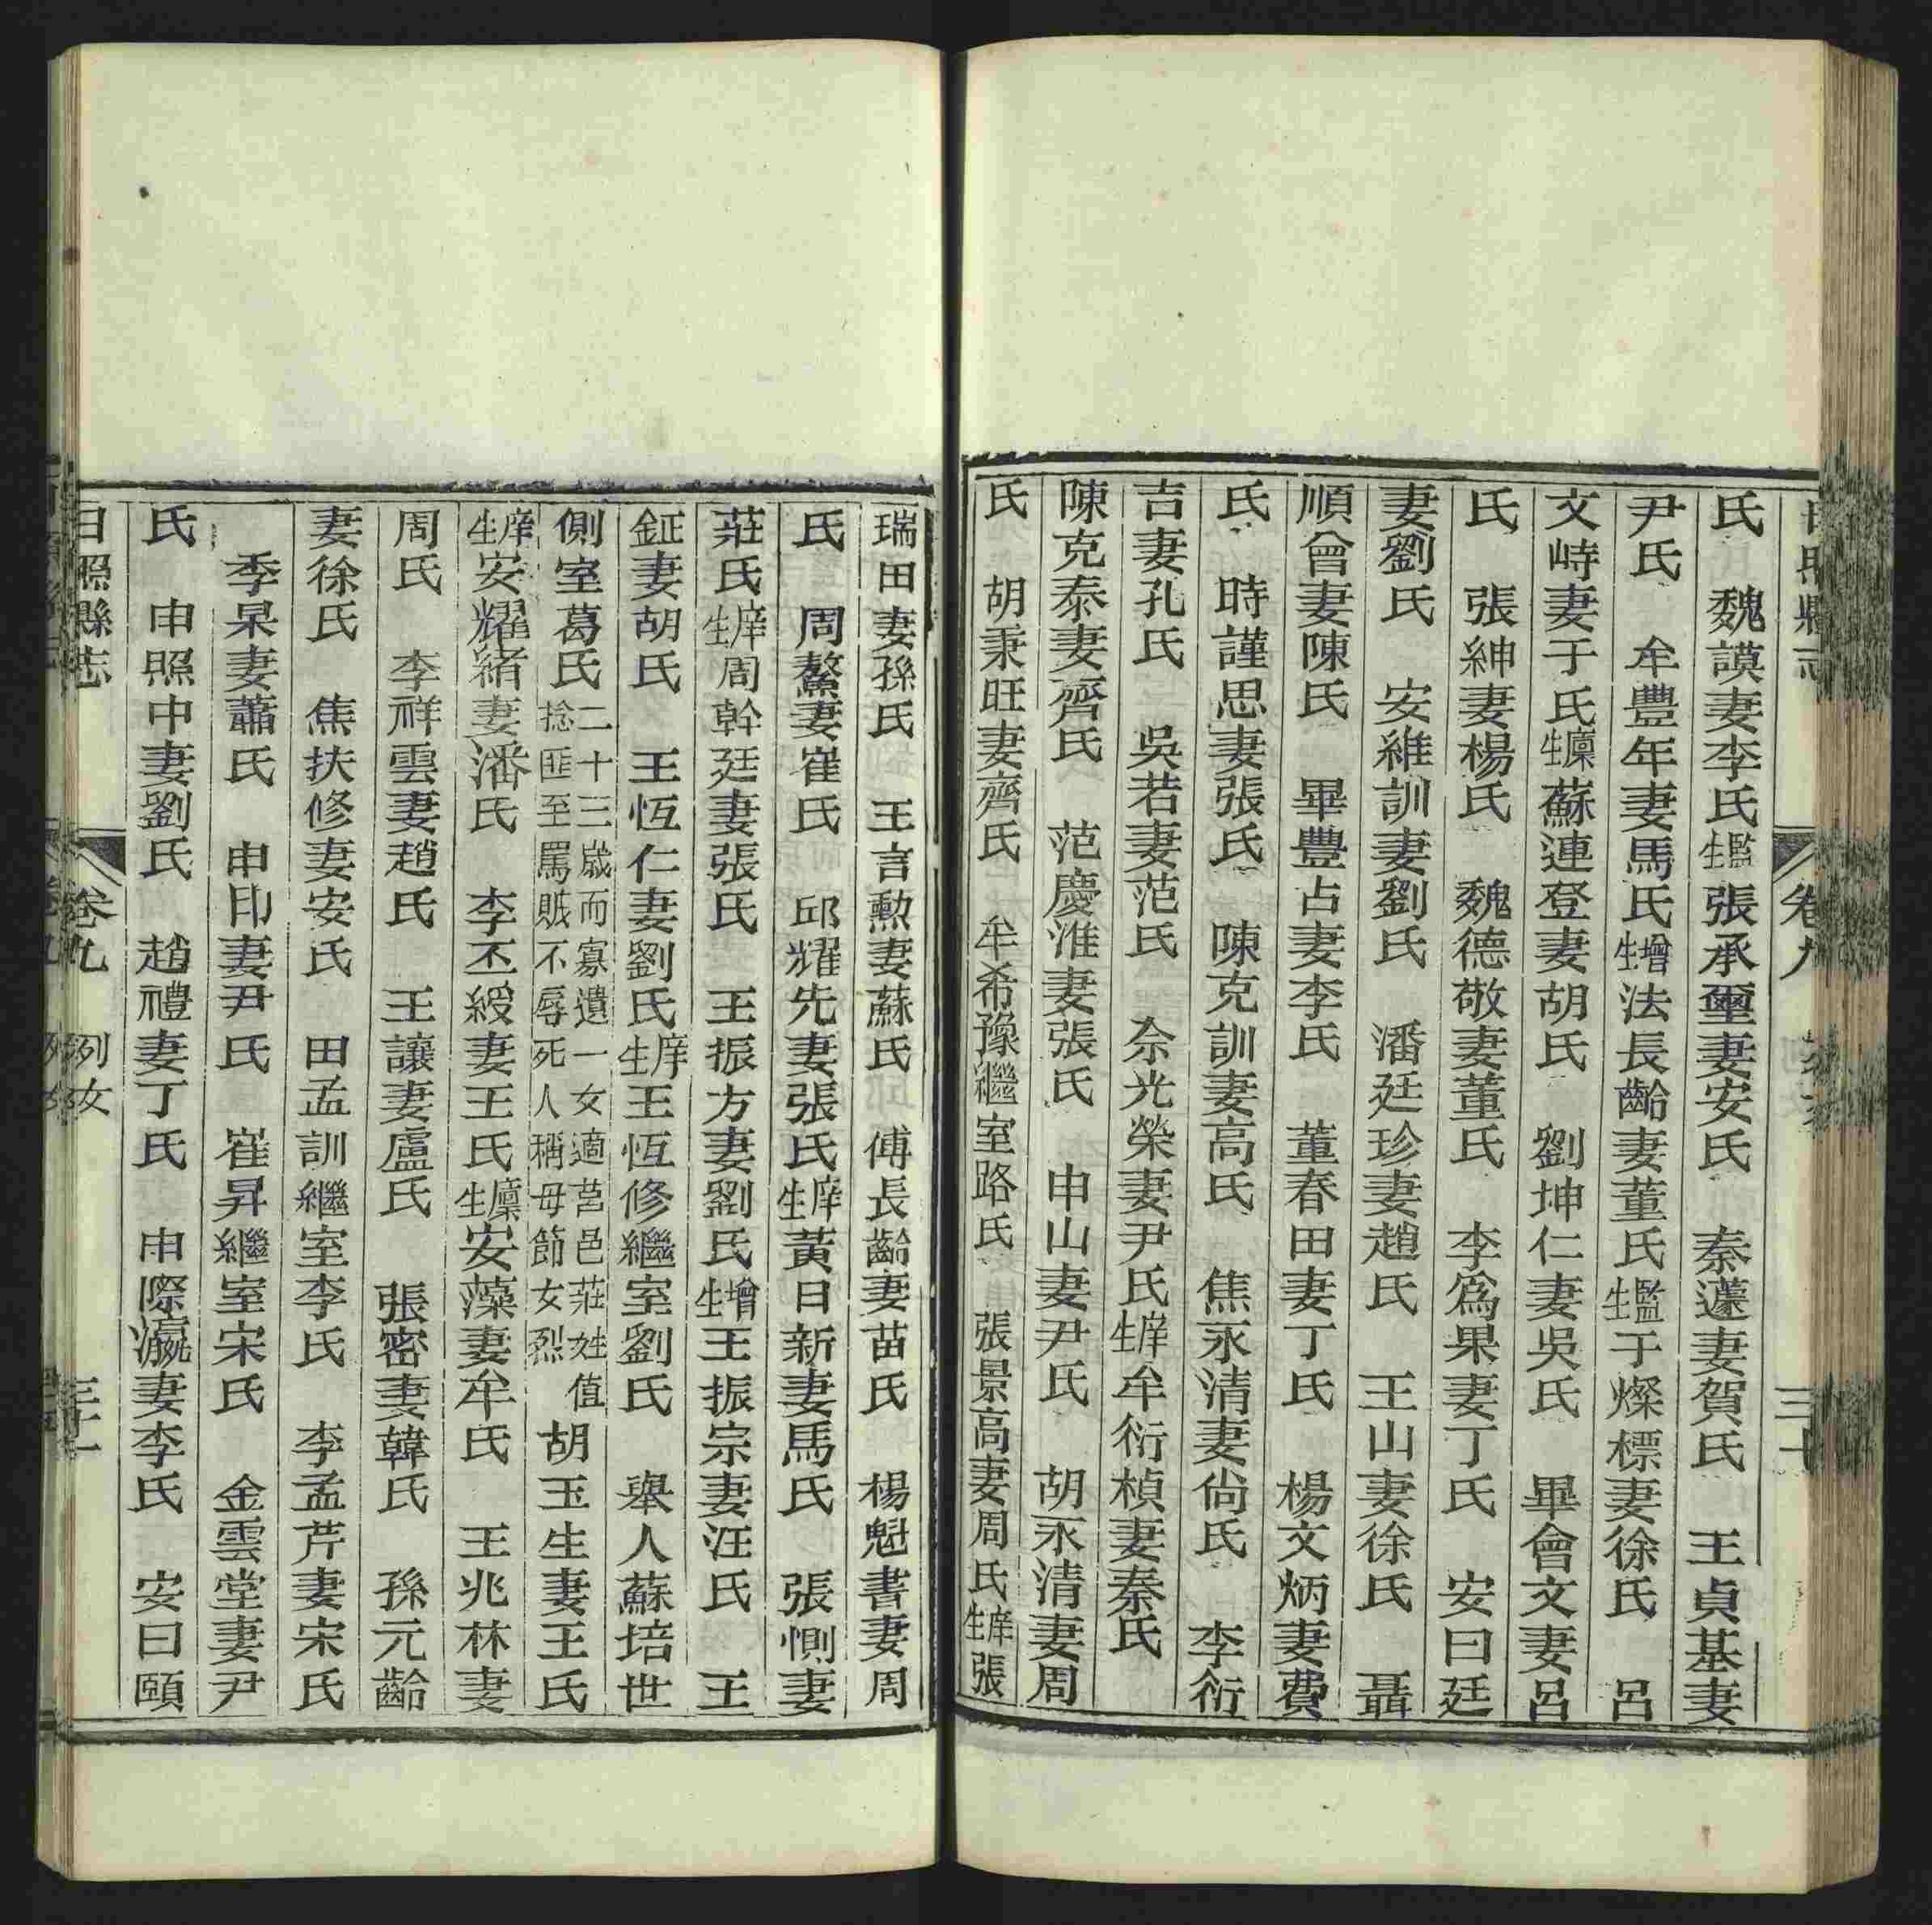 日照縣志 卷九 三十
氏 魏謨妻李氏 監生張承壐妻安氏 秦蘧妻賀氏 王貞基妻
尹氏 牟豐年妻馬氏 增生法長齡妻董氏 監生于燦標妻徐氏 呂
文峙妻于氏 廩生蘇連登妻胡氏 劉坤仁妻吳氏 畢會文妻呂
氏 張紳妻楊氏 魏德敬妻董氏 李爲果妻丁氏 安曰廷
妻劉氏 安維訓妻劉氏 潘廷珍妻趙氏 王山妻徐氏 聶
順曾妻陳氏 畢豐占妻李氏 董春田妻丁氏 楊文炳妻費
氏 時謹思妻張氏 陳克訓妻高氏 焦永清妻尙氏 李衍
吉妻孔氏 吳若妻范氏 佘光榮妻尹氏 庠生牟衍楨妻秦氏
陳克泰妻齊氏 范慶淮妻張氏 申山妻尹氏 胡永清妻周
氏 胡秉旺妻齊氏 牟希豫繼室路氏 張景高妻周氏 庠生張
瑞田妻孫氏 王言勲妻蘇氏 傅長齡妻苗氏 楊魁書妻周
氏 周鰲妻崔氏 邱耀先妻張氏 庠生黃日新妻馬氏 張惻妻
莊氏 庠生周幹廷妻張氏 王振方妻劉氏 增生王振宗妻汪氏 王
鉦妻胡氏 王恆仁妻劉氏 庠生王恆修繼室劉氏 舉人蘇培世
側室葛氏 二十三歲而寡遺一女適莒邑莊姓值捻匪至罵賊不辱死人稱母節女烈 胡玉生妻王氏
庠生安耀緒妻潘氏 李丕綬妻王氏 廩生安藻妻牟氏 王兆林妻
周氏 李祥雲妻趙氏 王讓妻盧氏 張密妻韓氏 孫元齡
妻徐氏 焦扶修妻安氏 田孟訓繼室李氏 李孟芹妻宋氏
季杲妻蕭氏 申印妻尹氏 崔昇繼室宋氏 金雲堂妻尹
氏 申照中妻劉氏 趙禮妻丁氏 申際瀛妻李氏 安曰頤
日照縣志 卷九 列女 三十一